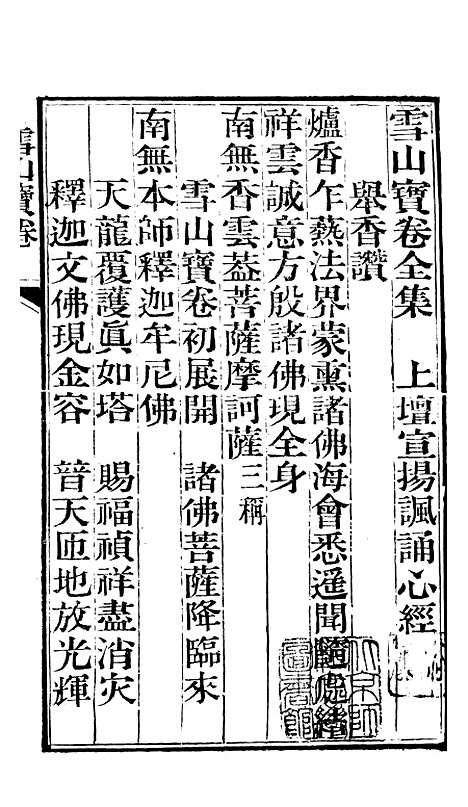 雪山寶卷全集　上壇宣揚諷誦心經
舉香讚
爐香乍爇法界蒙熏諸佛海會悉遥聞隨處結
祥雲誠意方殷諸佛現全身
南無香雲葢菩薩摩訶薩三稱
雪山寶卷初展開　諸佛菩薩降臨來
南無本師釋迦牟尼佛
天龍覆護眞如塔　賜福禎祥盡消灾
釋迦文佛現金容　普天匝地放光輝
雪山寶卷